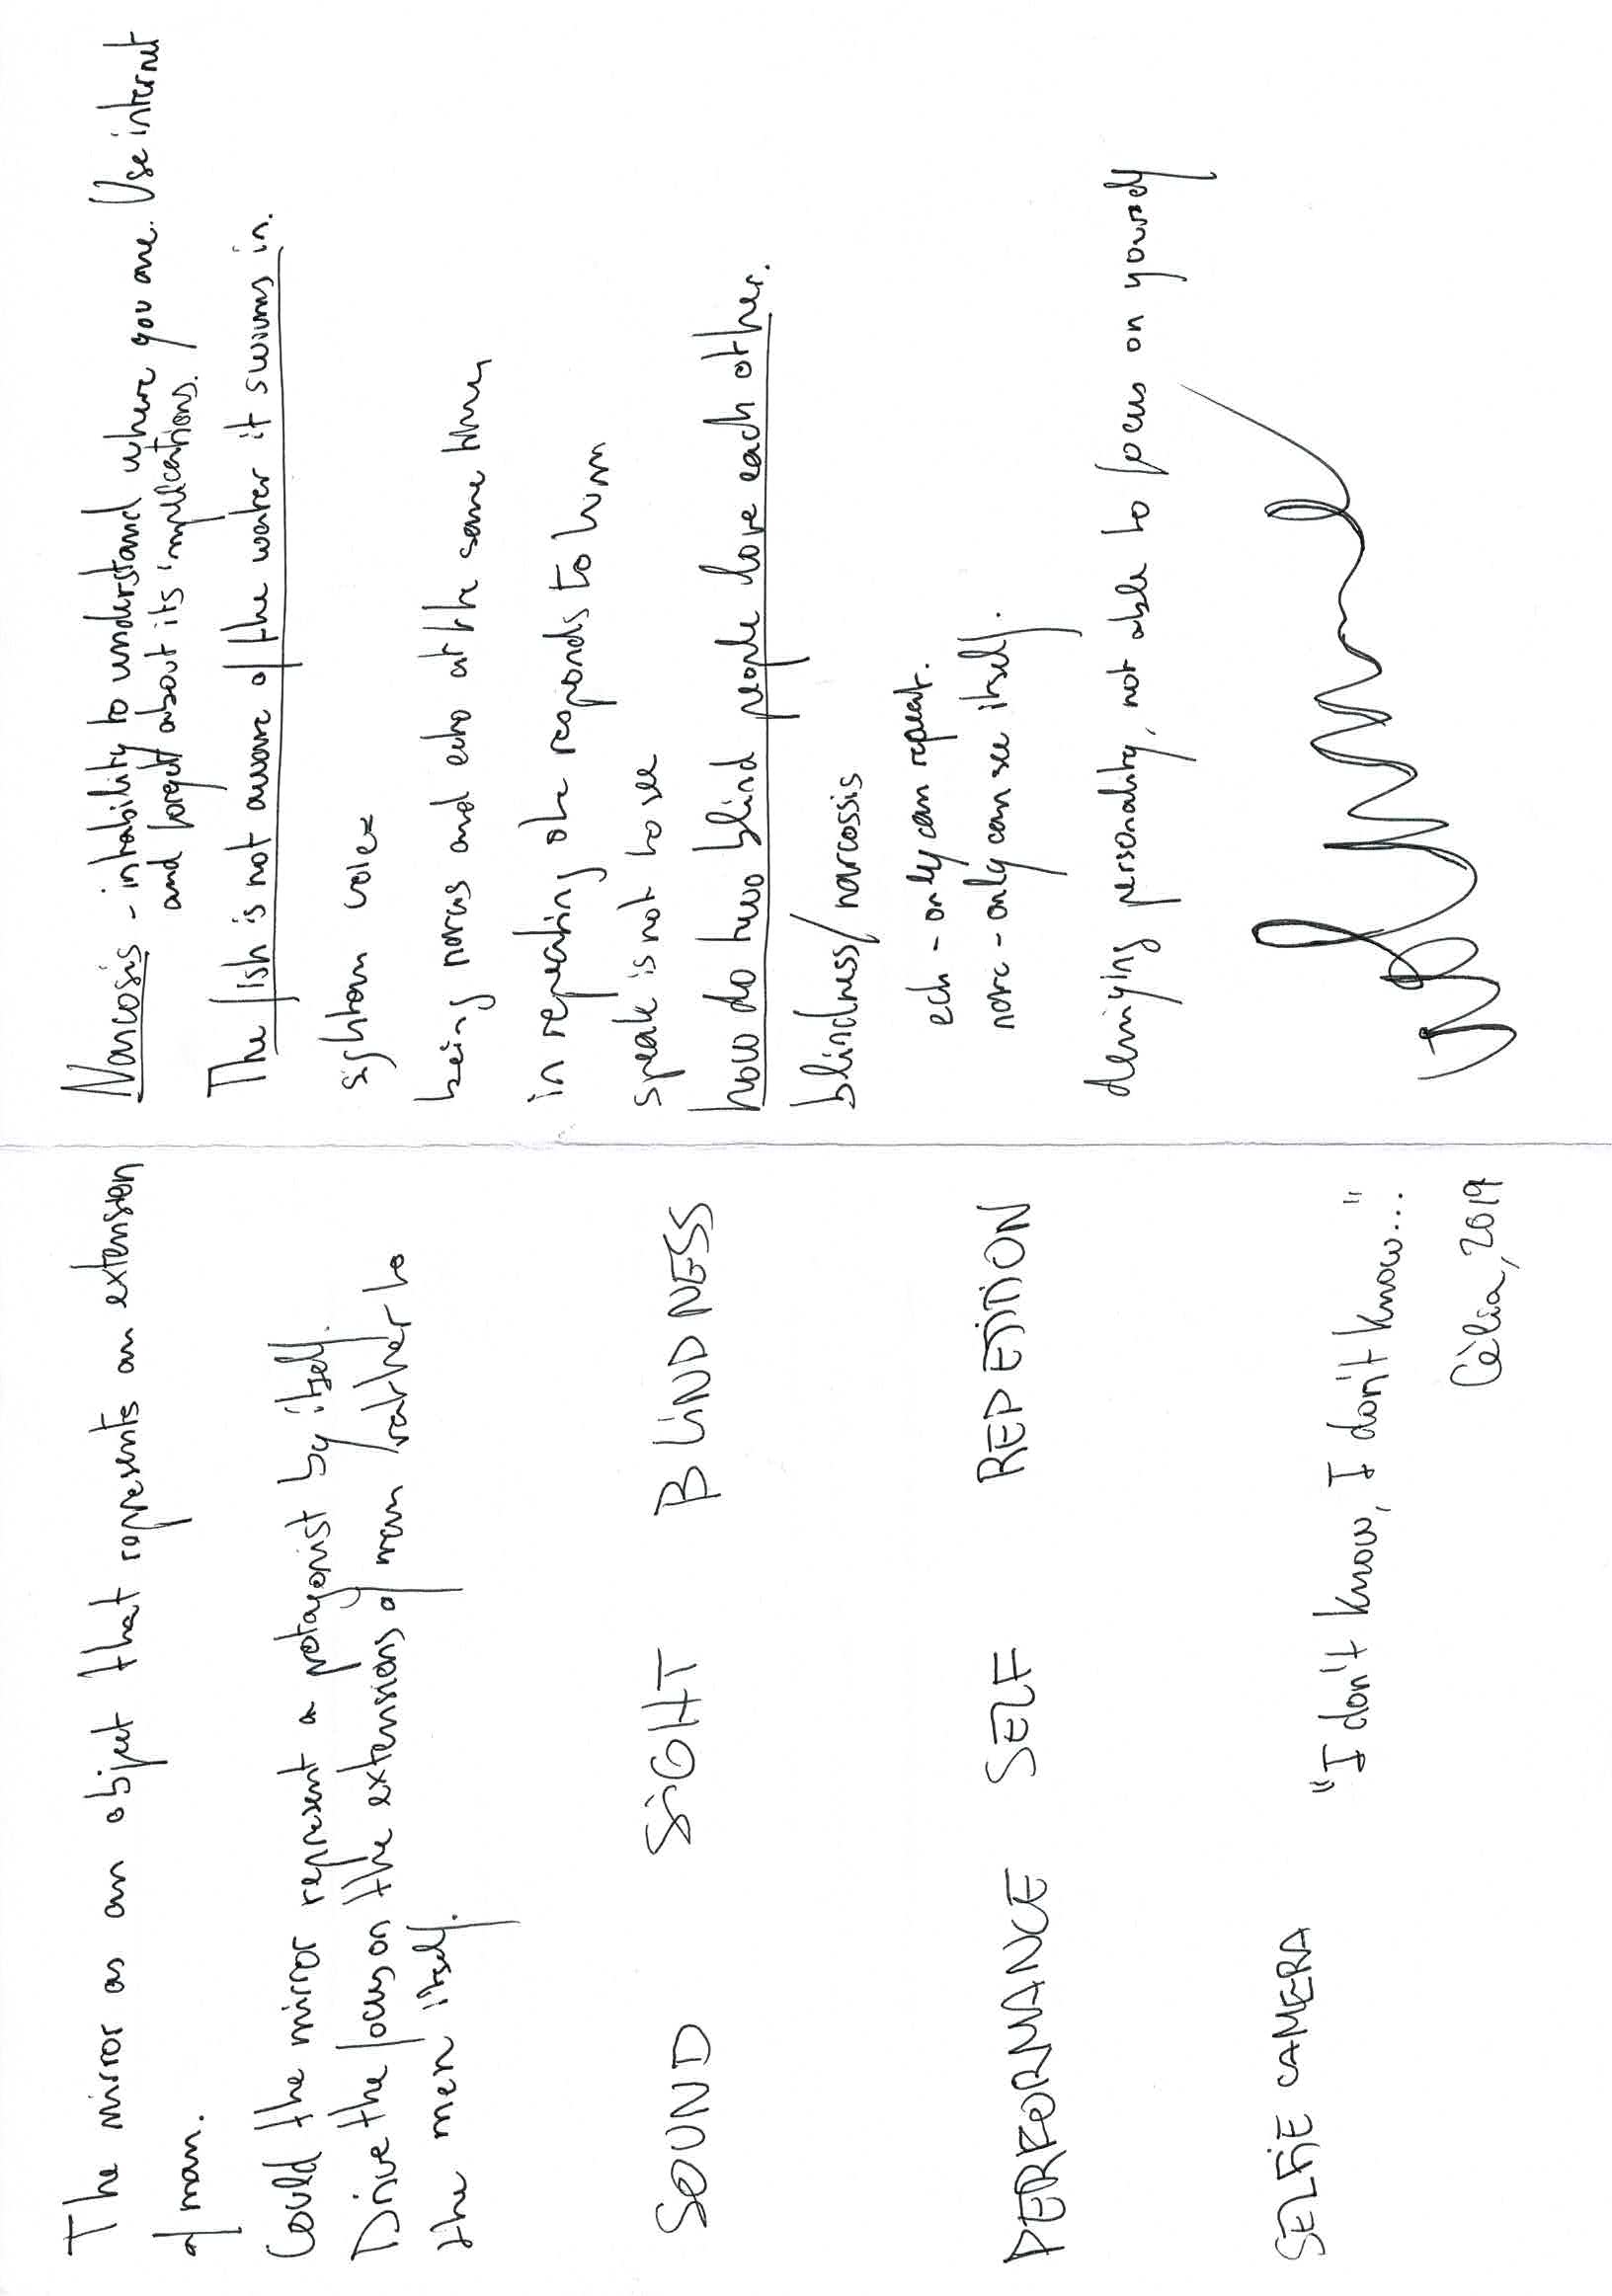 The mirror as an object that represents an extension
of man.
Could the mirror represent a protagonist by itself.
Drive the focus on the extensions of man rather to
the men itself.
SOUND SiGHT BLiNDNESS
PERFORMANCE SELF REPETiTiON
SELFiE CAMERA
"I don't know, I don't know..."
Cèlia, 2019
Narcosis - intability to understand where you are. Use internet
and forget about its implications.
The fish is not aware of the water it swims in.
being narcis and echo at the same time
in repeating she responds to him
speak is not to see
how do two blind people love each other.
blindness/narcossis
ech - only can repeat.
narc - only can see itself.
deniying personality, not able to focus on yourself
volume